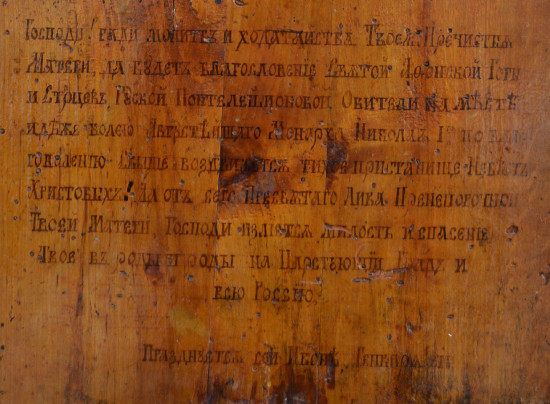 Господи! ради молитв и ходатайства Твоея Пречистыя
Матери, да будет благословение Святой Афонской Горы
и Старцев Руской Пантелеймоновской Обители на месте
идеже волею Августейшаго Монарха Николая I го по
говолению свыше воздвигается тихое пристанище Невест
Христовых! Да от сего Пресвятаго Лика Пренепорочной
Твоей Матери, Господи излиется милость и спасение
Твое в роды и роды на Царствующий Град и
всю Россию.
Празднуется сей Иконе